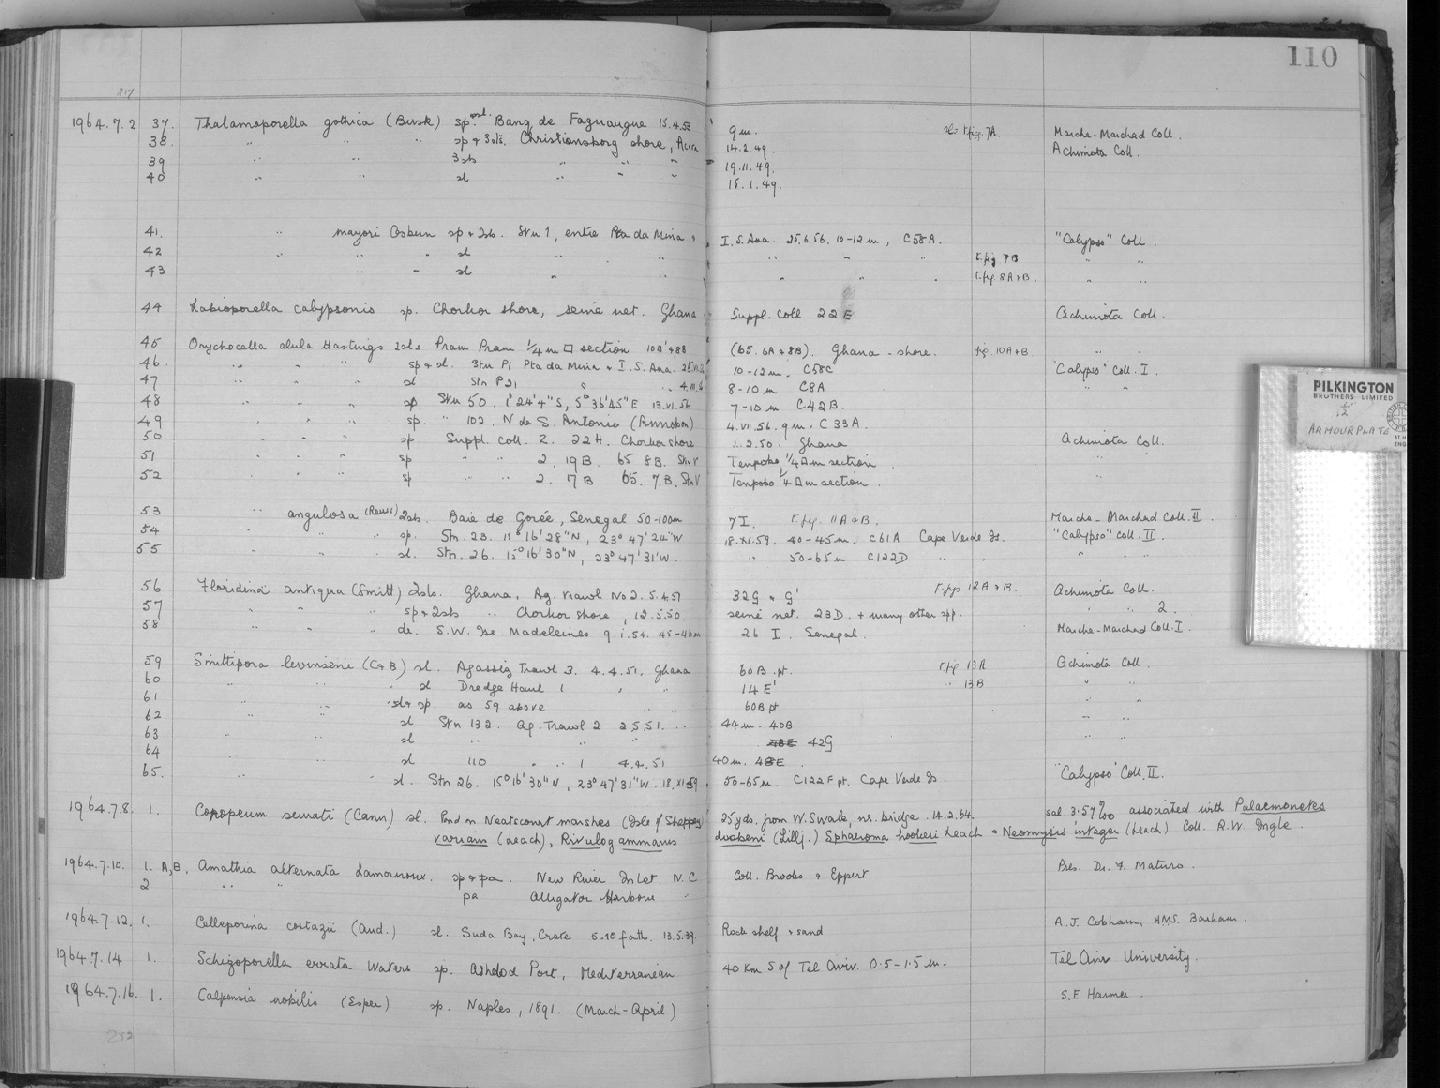 110
217
1964.7.2 37. Thalamoporella gothica (Busk) sp. Banq de 15.4.53 9m. Marche-Marchad Coll.
38. " " " sp + 3sls. Christiansborg shore, Accra 14.2.49. Achimota Coll.
39 " " " " " " 19.11.49.
40 " " sl " " " 15.1.49.
41. " mayori Osburn sp + 2sls. Stn 1, entre Pta da Mina + I.S.Ana. 25.6.56. 10-12 m, C58A. "Calypso" Coll.
42 " " " sl " " " " " " "
43 " sl " " " " fig 8A+B. " "
44 Labioporella calypsonis sp. Chorkor shore, seine net. Ghana Suppl. Coll 22E Achimota Coll.
45 Onychocella alula Hastings 2sls Pram Pram 1/4 m □ section (65. 6A + 8B). Ghana - shore. fig. 10A+B. " "
46. " " " sp + sl. Stn P1 Pta da Mina + I.S. Ana. 10-12 m. C58C "Calypso" Coll. I.
47 " " " sl Stn P21 " 8-10 m C8A " "
48 " " " sp Stn 50. 1°24'4"S, 5°36'45"E 13.VI.56 7-10 m C42B.
49 " " " sp. " 102. N de S. Antonio (Annobon) 4.VI.56. 9 m. C33A.
50 " " " sp Suppl. coll. 2. 22H. Chorkor shore 2.50. Ghana Achimota Coll.
51 " " " sp " " 2. 19B. 65 8B. Stn V 1/4 □ m section. "
52 " " " sp " " 2. 17B 65. 7B. Stn V 1/4 □ m section. "
53 " angulosa (Reuss) 2sls. Baie de Gorée, Senegal 50-100m 7 I. fig. 11A+B. Marche-Marchad Coll. II.
54 " " sp. Stn. 23. 11°16'28"N, 23°47'24"W 18.XI.59. 40-45m. C61A Cape Verde Is. "Calypso" Coll. II.
55 " " sl. Stn. 26. 15°16'30"N, 23°47'31"W. " 50-65m C122D " " "
56 Floridina antiqua (Smitt) 2sls. Ghana, Ag. Trawl No 2. 5.4.51 32G + G' figs 12A+B. Achimota Coll.
57 " " " sp + 2sls " Chorkor shore, 12.5.50. seine net. 23D. + many other spp. " " 2.
58 " " " do. S.W. Madeleines 45-46m 26 I. Senegal. Marche-Marchad Coll. I
59 Smittipora levinseni (C+B) sl. Agassiz Trawl 3. 4.4.51. Ghana 60B. pt. fig 13A Achimota Coll.
60 " " " sl Dredge Haul 1 " " 14E' " 13B " "
61 " " sl + sp as 59 above " " 60B pt " "
62 " " sl Stn 132. Ag. Trawl 2 2.5.51. " 44m. 40B " "
63 " " sl " " " 42G " "
64 " " sl 110 " " 1 4.4.51 40m. 43E "
65. " " sl. Stn 26. 15°16'30"N, 23°47'31"W. 18.XI.59 50-65m C122F pt. Cape Verde Is "Calypso" Coll. II.
1964.7.8. 1. Conopeum seurati (Canu) sl. Pond on Neatscourt marshes (Isle of Sheppey) 25 yds. from W. Swale, nr. bridge. 14.2.64. sal 3.57‰ associated with Palaemonetes
varians (Leach), Rivulogammarus duebeni (Lillj.) Sphaeroma hookeri Leach + Neomysis integer (Leach) Coll. R.W. Ingle.
1964.7.10. 1. A,B. Amathia alternata Lamouroux. sp + pa. New River Inlet N.C Coll. Brooks + Eppert Pres. Dr. F. Maturo.
2 " " pa Alligator Harbour "
1964.7.12. 1. Celleporina costazii (Aud.) sl. Suda Bay, Crete 5-10 fath. 13.5.39. Rock shelf + sand A.J. Cobham, HMS. Barham.
1964.7.14 1. Schizoporella errata Waters sp. Ashdod Port, Mediterranean 40 Km S of Tel Aviv. 0.5-1.5 m. Tel Aviv University.
1964.7.16. 1. Calpensia nobilis (Esper) sp. Naples, 1891. (March-April) S.F Harmer.
252
PILKINGTON
BROTHERS LIMITED
1/2
ARMOURPLATE